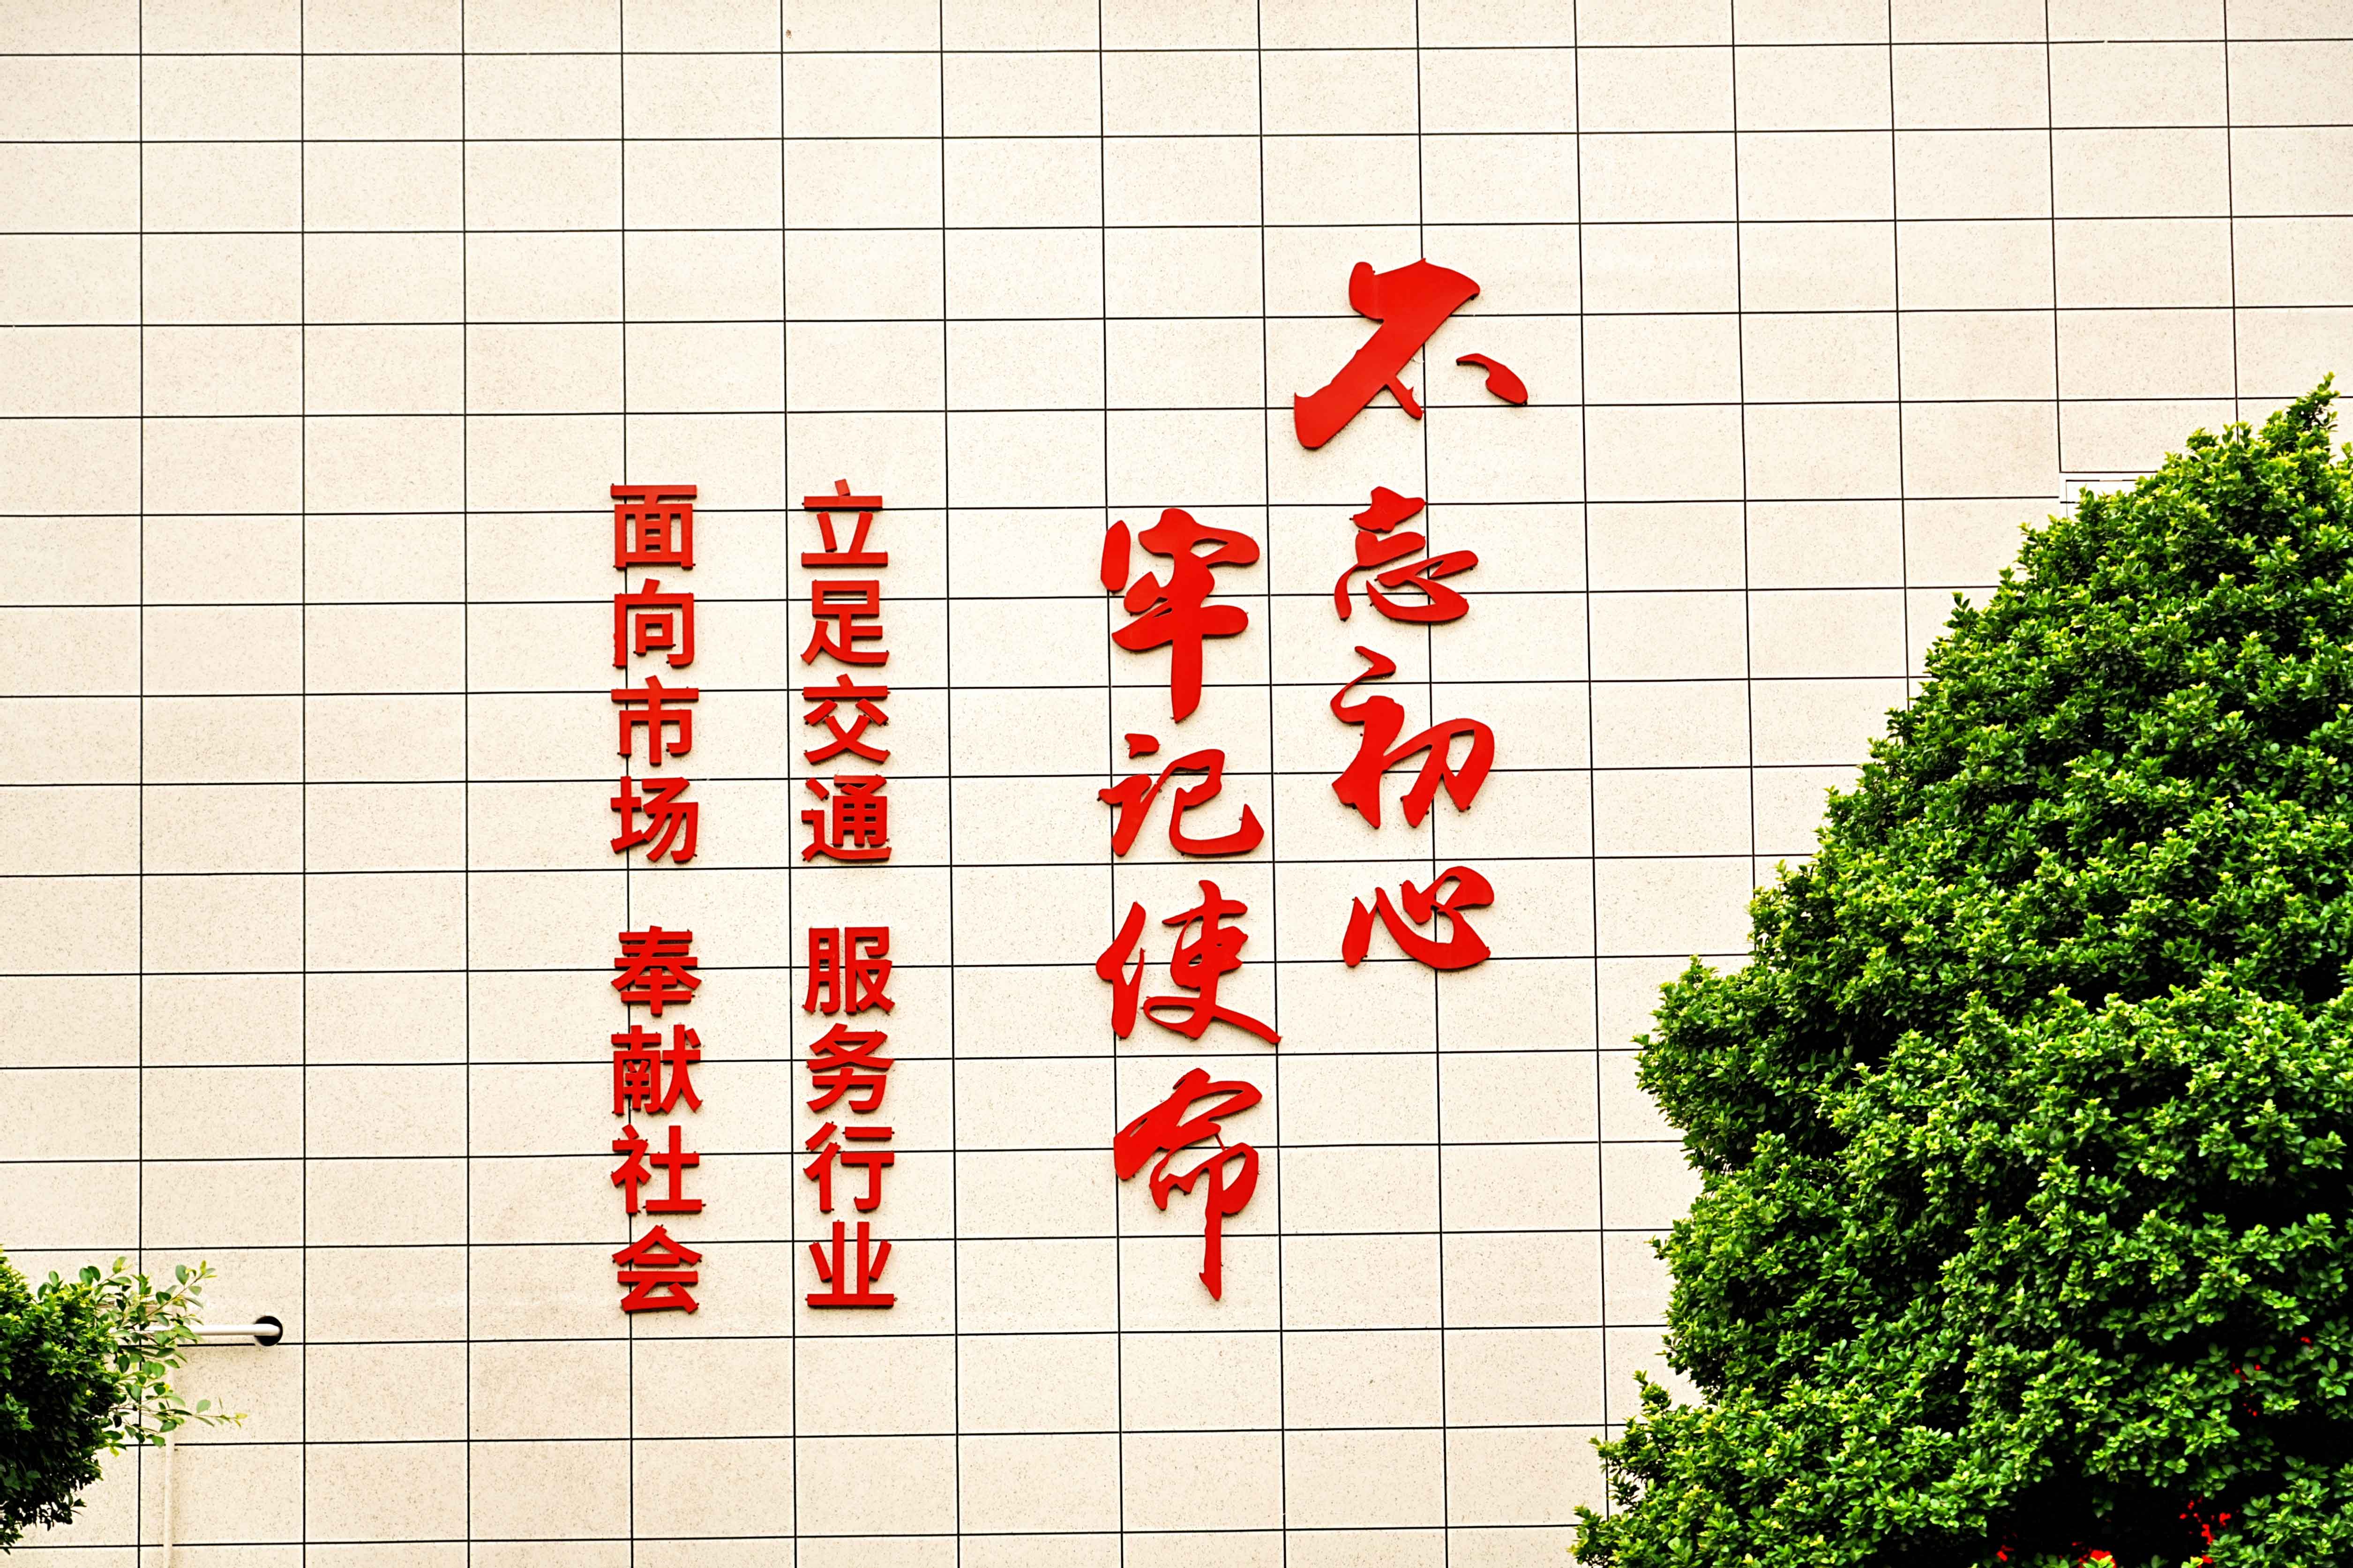 不忘初心
牢记使命
立足交通 服务行业
面向市场 奉献社会